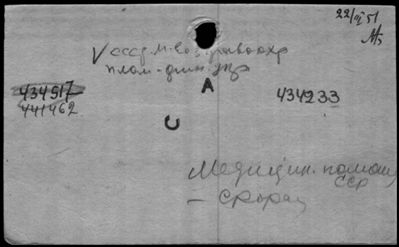 22/V 51
V ссср. М-во здравоохр
план-фин. упр
434517
441462
А
434233
С
Медицин. помощь
ССР
— скорая